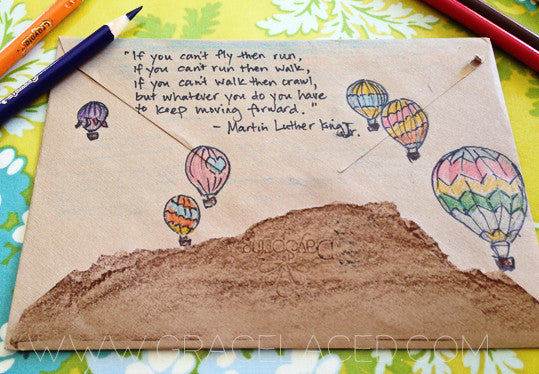 "If you can't fly then run,
if you can't run then walk,
if you can't walk then crawl,
but whatever you do you have
to keep moving forward."
- Martin Luther King Jr.
Crayola
WWW.GRACELACED.COM